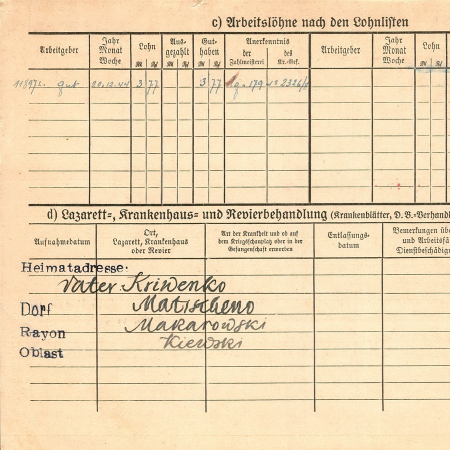 c) Arbeitslöhne nach den Lohnlisten
Arbeitgeber Jahr Monat Woche Lohn Aus- gezahlt Gut- haben Anerkenntnis der Zahlmeisterei des Kr.-Gef. Arbeitgeber Jahr Monat Woche Lohn
gut 20.12.44 3 77 3 77 179
d) Lazarett-, Krankenhaus- und Revierbehandlung (Krankenblätter, D.B.-Verhandl
Aufnahmedatum Ort, Lazarett, Krankenhaus oder Revier Art der Krankheit und ob auf dem Kriegsschauplatz oder in der Gefangenschaft erworben Entlassungs- datum Bemerkungen über und Arbeitsfä Dienstbeschädig
Heimatadresse:
Vater Kriwenko
Dorf Matischeno
Rayon Makarowski
Oblast Kiewski